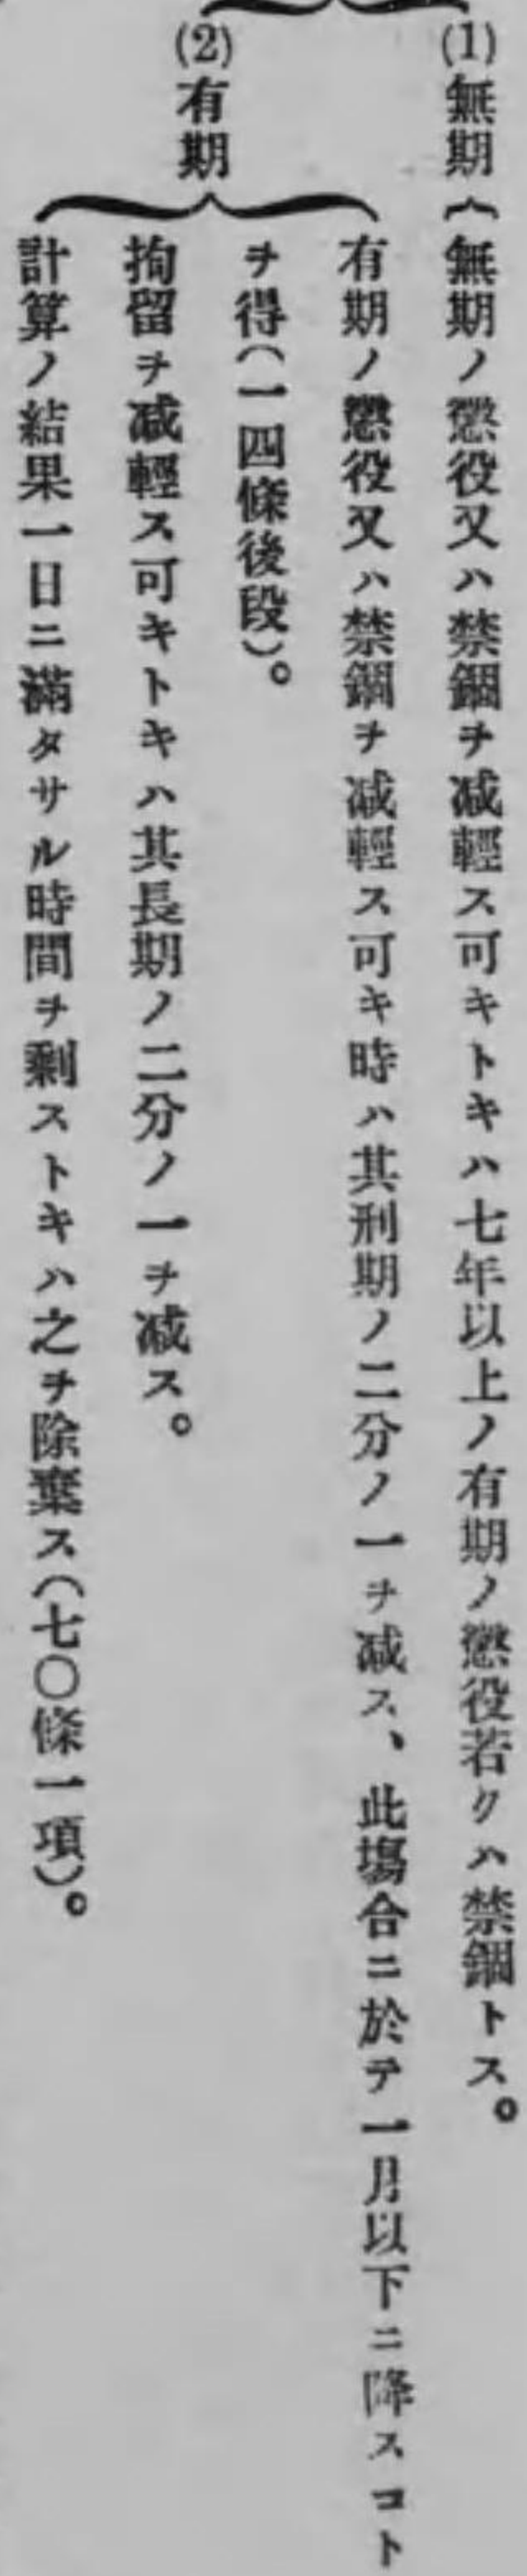 (1)無期{無期ノ懲役又ハ禁錮ヲ減輕ス可キトキハ七年以上ノ有期ノ懲役若クハ禁錮トス。
(2)有期
有期ノ懲役又ハ禁錮ヲ減輕ス可キ時ハ其刑期ノ二分ノ一ヲ減ス、此塲合ニ於テ一月以下ニ降スコト
ヲ得(一四條後段)。
拘留ヲ減輕ス可キトキハ其長期ノ二分ノ一ヲ減ス。
計算ノ結果一日ニ滿タサル時間ヲ剩ストキハ之ヲ除棄ス(七〇條一項)。